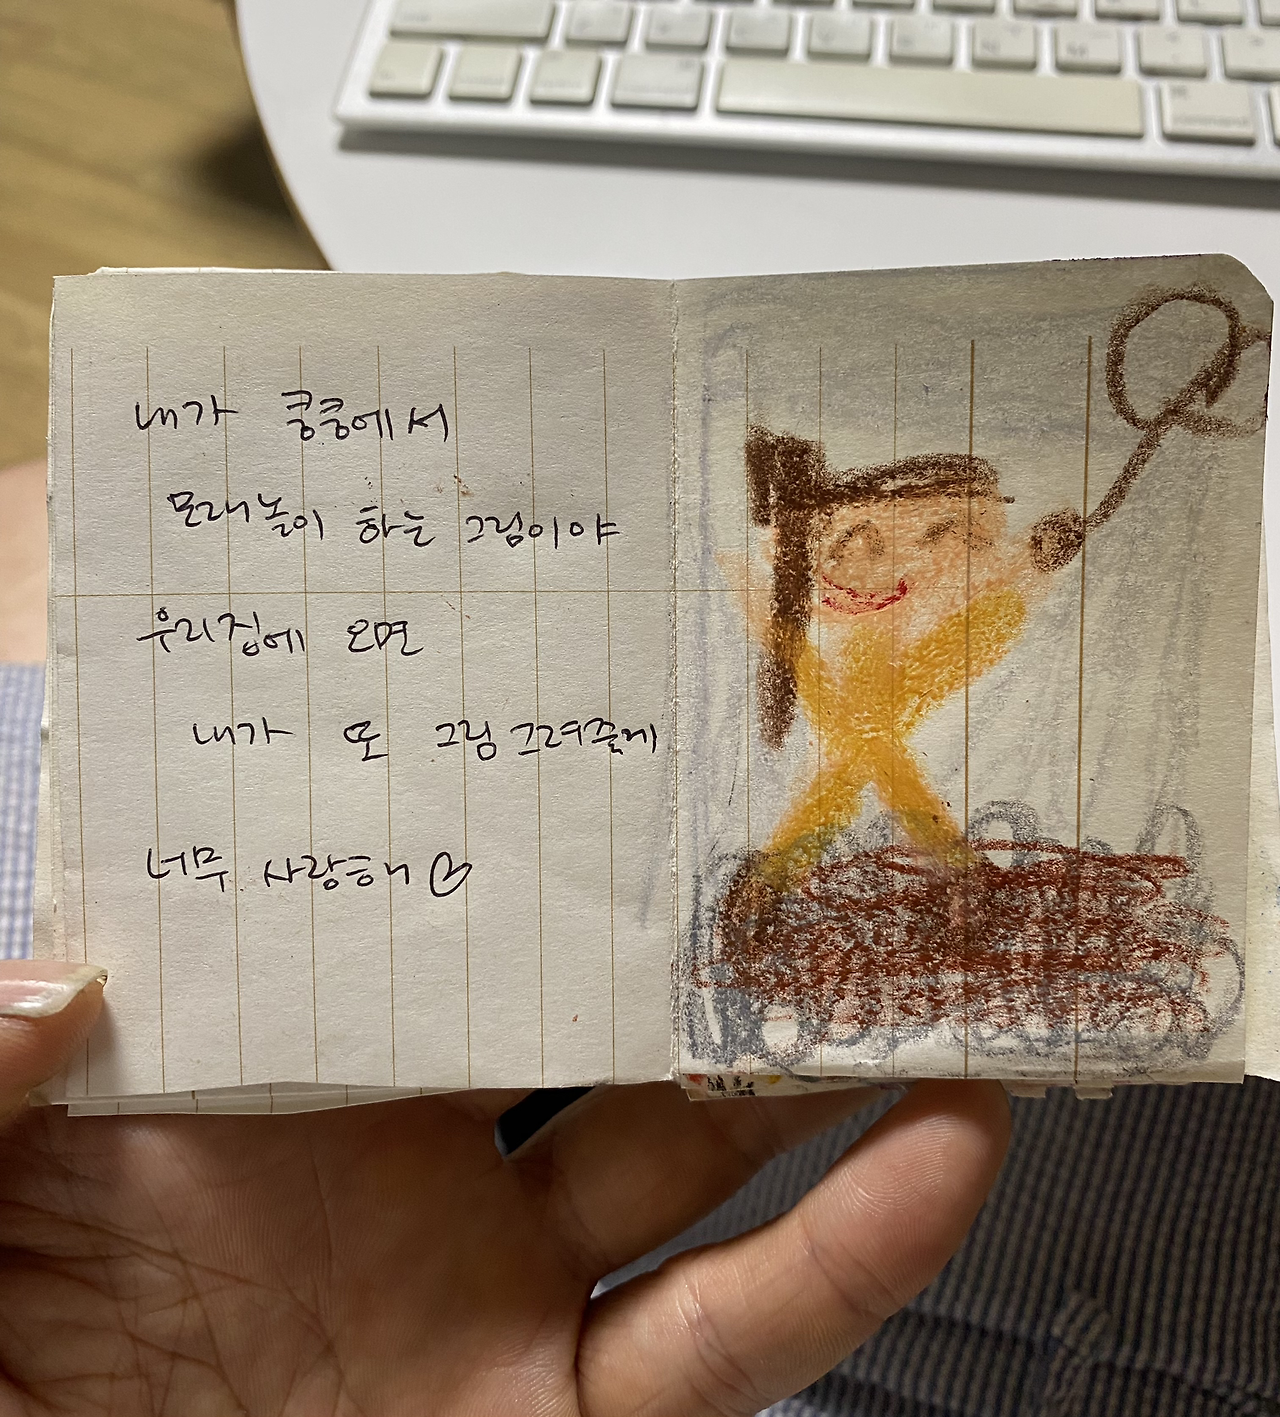 내가 쿵쿵에서
모래놀이 하는 그림이야
우리집에 오면
내가 또 그림 그려줄게
너무 사랑해♡
command